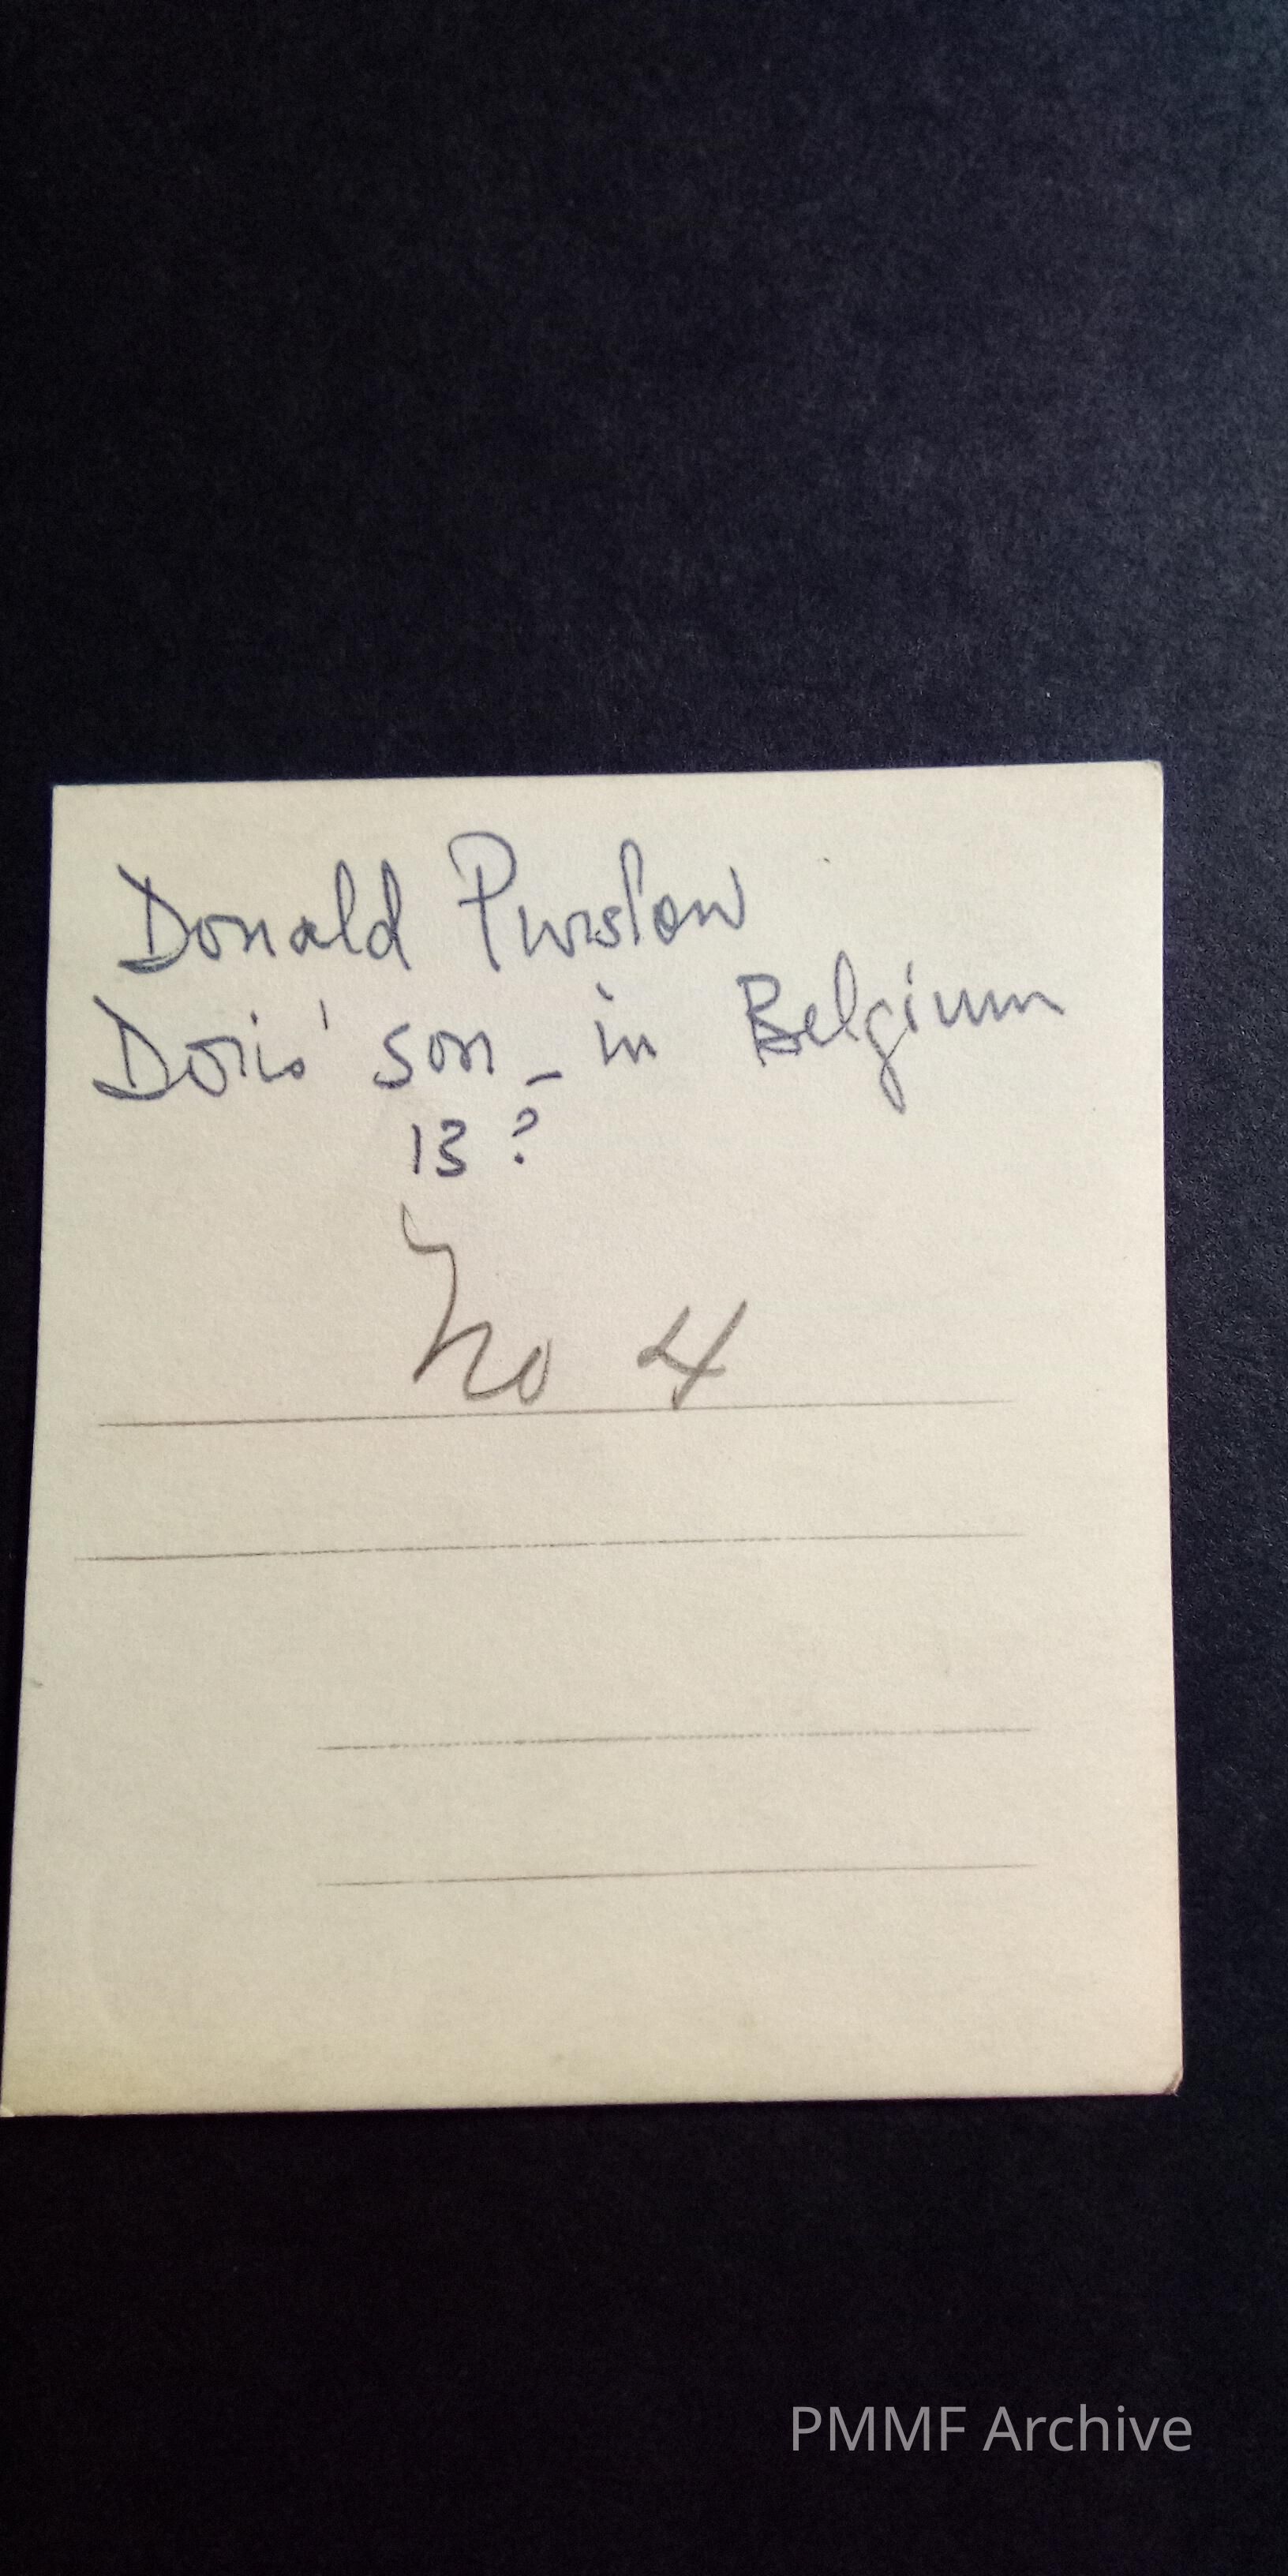 Donald Purslow
Doris' son – in Belgium
13?
No 4
PMMF Archive